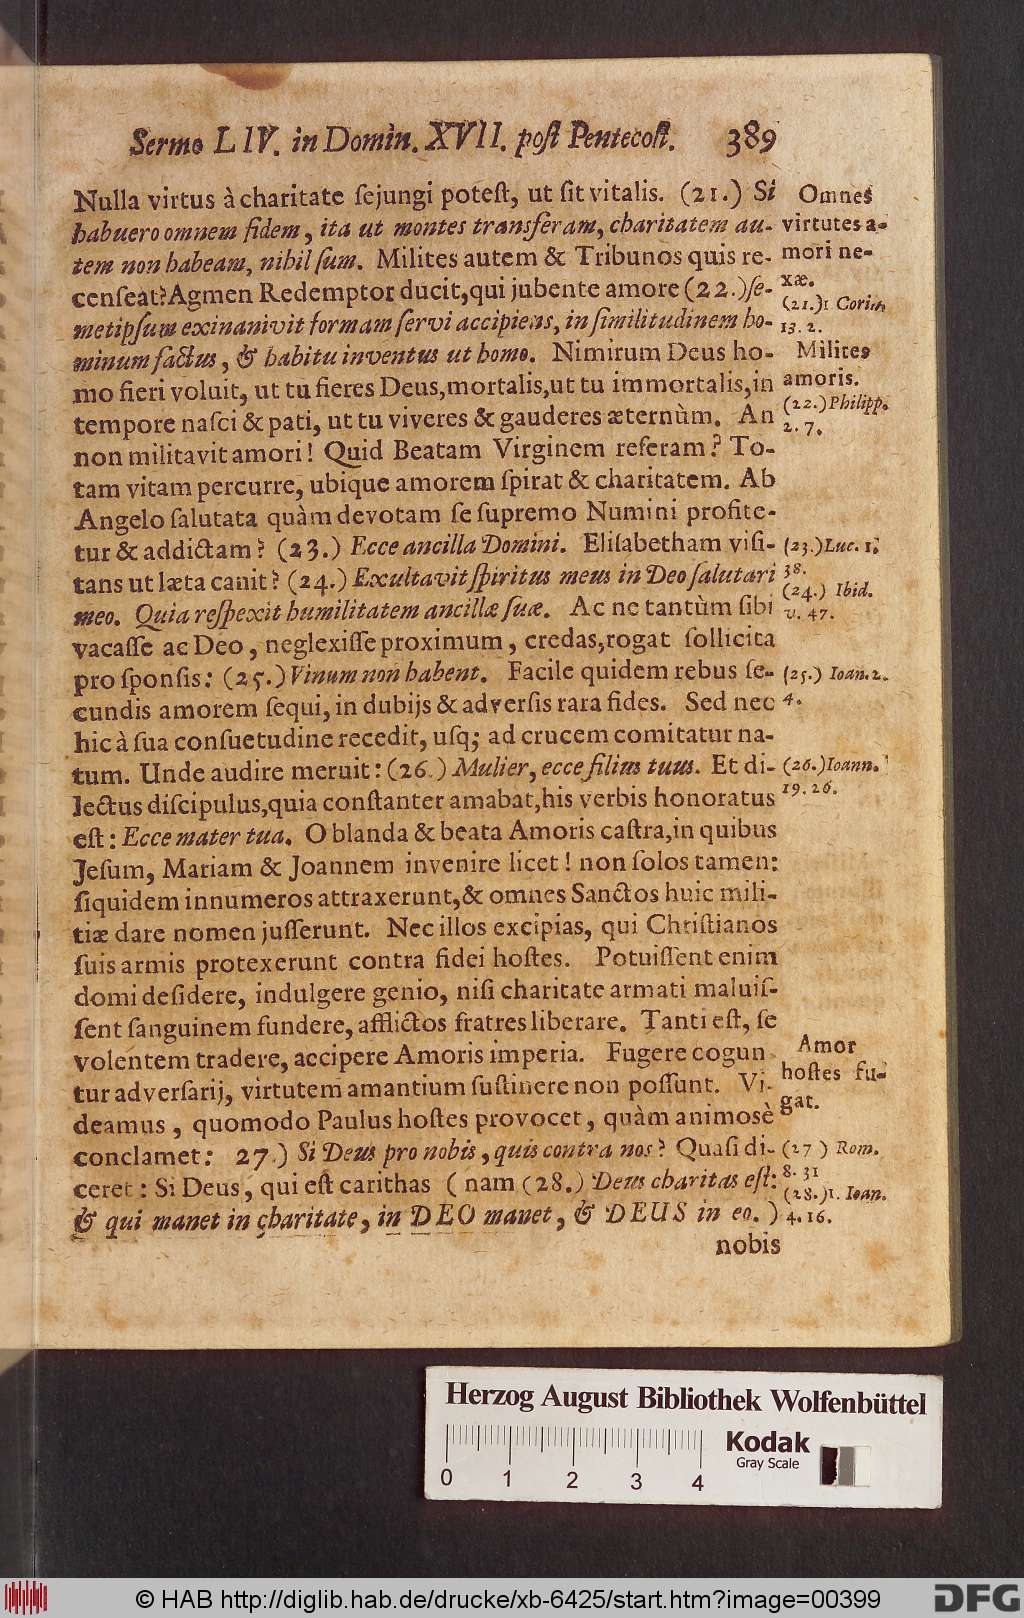 Sermo LIV. in Domin. XVII. post Pentecost. 389
Nulla virtus à charitate sejungi potest, ut sit vitalis. (21.) Si
habuero omnem fidem, ita ut montes transferam, charitatem au-
tem non habeam, nihil sum. Milites autem & Tribunos quis re-
censeat? Agmen Redemptor ducit, qui jubente amore (22.) se-
metipsum exinanivit formam servi accipiens, in similitudinem ho-
minum factus, & habitu inventus ut homo. Nimirum Deus ho-
mo fieri voluit, ut tu fieres Deus, mortalis, ut tu immortalis, in
tempore nasci & pati, ut tu viveres & gauderes æternùm. An
non militavit amori! Quid Beatam Virginem referam? To-
tam vitam percurre, ubique amorem spirat & charitatem. Ab
Angelo salutata quàm devotam se supremo Numini profite-
tur & addictam? (23.) Ecce ancilla Domini. Elisabetham visi-
tans ut læta canit? (24.) Exultavit spiritus meus in Deo salutari
meo. Quia respexit humilitatem ancillæ suæ. Ac ne tantùm sibi
vacasse ac Deo, neglexisse proximum, credas, rogat sollicita
pro sponsis: (25.) Vinum non habent. Facile quidem rebus se-
cundis amorem sequi, in dubijs & adversis rara fides. Sed nec
hic à sua consuetudine recedit, usq; ad crucem comitatur na-
tum. Unde audire meruit: (26.) Mulier, ecce filius tuus. Et di-
lectus discipulus, quia constanter amabat, his verbis honoratus
est: Ecce mater tua. O blanda & beata Amoris castra, in quibus
Jesum, Mariam & Joannem invenire licet! non solos tamen:
siquidem innumeros attraxerunt, & omnes Sanctos huic mili-
tiæ dare nomen jusserunt. Nec illos excipias, qui Christianos
suis armis protexerunt contra fidei hostes. Potuissent enim
domi desidere, indulgere genio, nisi charitate armati maluis-
sent sanguinem fundere, afflictos fratres liberare. Tanti est, se
volentem tradere, accipere Amoris imperia. Fugere cogun
tur adversarij, virtutem amantium sustinere non possunt. Vi-
deamus, quomodo Paulus hostes provocet, quàm animosè
conclamet: 27.) Si Deus pro nobis, quis contra nos? Quasi di-
ceret: Si Deus, qui est carithas (nam (28.) Deus charitas est:
& qui manet in charitate, in DEO manet, & DEUS in eo.)
nobis
Omnes
virtutes a-
mori ne-
xæ.
(21.) 1 Corin.
13. 2.
Milites
amoris.
(22.) Philipp.
2. 7.
(23.) Luc. 1.
38.
(24.) Ibid.
v. 47.
(25.) Ioan. 2.
4.
(26.) Ioann.
19. 26.
Amor
hostes fu-
gat.
(27) Rom.
8. 31
(28.) 1. Ioan.
4. 16.
Herzog August Bibliothek Wolfenbüttel
Kodak
Gray Scale
0 1 2 3 4
© HAB http://diglib.hab.de/drucke/xb-6425/start.htm?image=00399
DFG